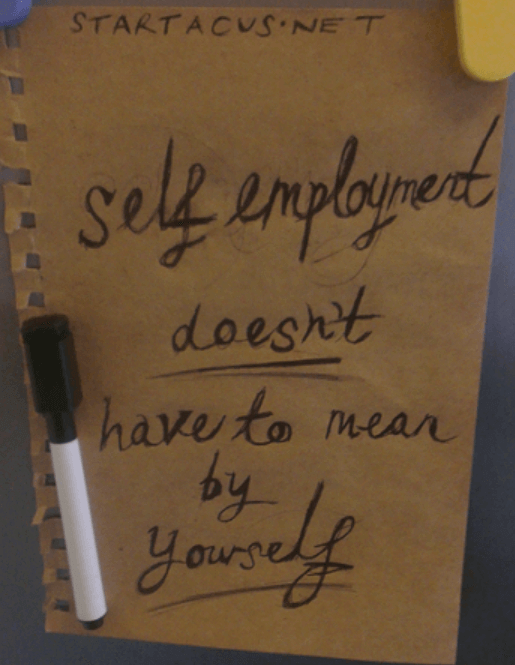 STARTACUS.NET
self employment
doesn't
have to mean
by
yourself